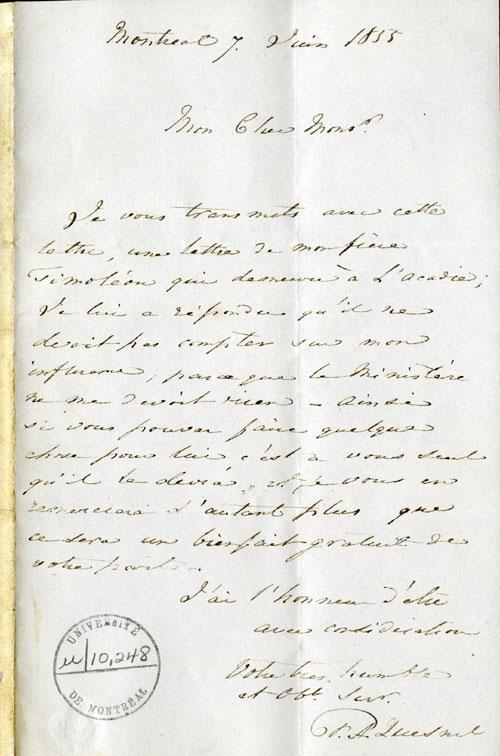 Montreal 7. Juin 1855
Mon Cher Monsr.
Je vous transmets avec cette
lettre, une lettre de mon frère
Timoléon qui demeure à L'acadie;
Je lui a répondu qu'il ne
devoit pas compter sur mon
influence, parce que le Ministère
ne me devoit rien - ainsi
si vous pouvez faire quelque
chose pour lui c'est à vous seul
qu'il le devra, et je vous en
remercierai d'autant plus que
ce sera un bienfait gratuit de
votre part.
J'ai l'honneur d'être
avec considération
Votre très humble
et Obt. Serv.
Quesnel
UNIVERSITÉ
10,248
DE MONTRÉAL